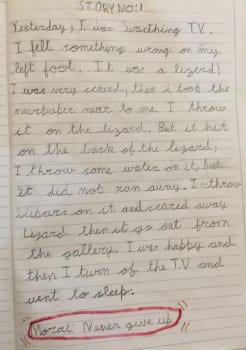 STORY NO:1
Yesterday, I was wacthing T.V.
I felt something wrong on my
left foot. It was a lizerd!
I was very scared, then i took the
newspaper near to me. I throw
it on the lizard. But it hit
on the back of the lizard,
I throw some water on it, but
it did not run away. I throw
slipars on it and scared away
Lizard then it go out from
the gallery. I was happy and
then I turn of the T.V. and
went to sleep.
Moral: Never give up